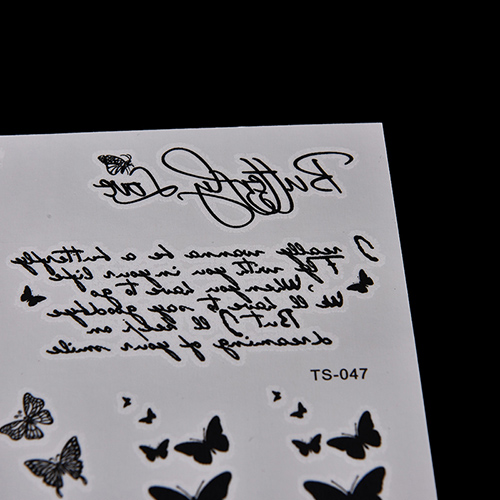 Butterfly Love
I really wanna be a butterfly
Fly with you in your life
When you have to go
We'll have to say goodbye
But I'll keep on
dreaming of your smile
TS-047